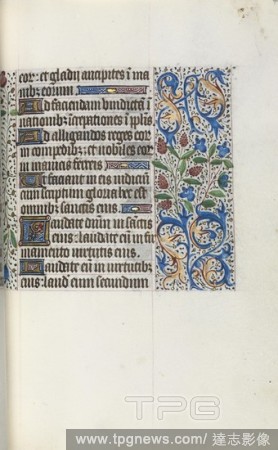 cor: et gladii ancipites ī ma
nibꝫ eorum
Ad faciendam vindictā ī
nationibꝫ: īcrepationes ī pplis
Ad alligandos reges eor
in compedibꝫ: et nobiles eor
in manicis ferreis
Ut faciant in eis iudiciū
conscriptum: gloria hec est
omnibꝫ sanctis eius
Laudate dnm in sanctis
eius: laudate eū in fir
mamento virtutis eius.
Laudate eū in virtutibꝫ
eius: laud eum secundum
TPG
www.tpgnews.com/ 達志影像